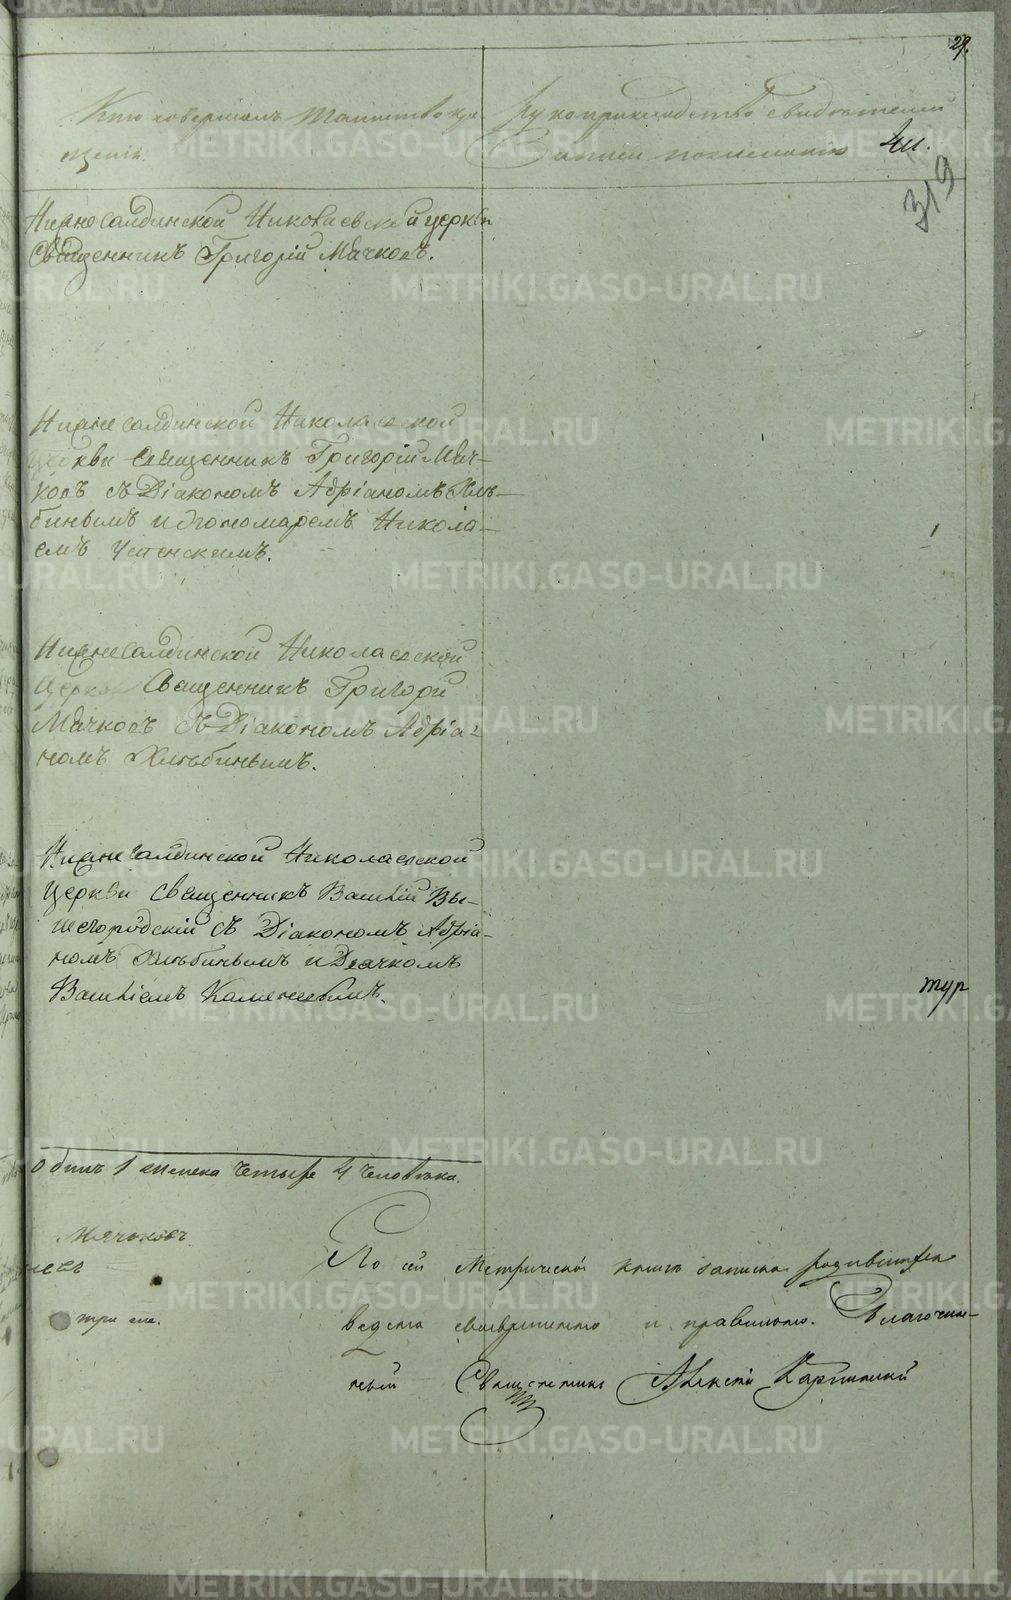 29.
Кто совершалъ таинство кре-
щенія.
Рукоприкладство свидѣтелей
записи по желанію
319
Нижнесалдинской Николаевской церкви
Священникъ Григорій Мячковъ.
Нижнесалдинской Николаевской
церкви священникъ Григорій Мяч-
ковъ съ Діакономъ Адріаномъ Хлѣ-
биньымъ и пономаремъ Никола-
емъ Успенскимъ.
Нижнесалдинской Николаевской
Церкви Священникъ Григорій
Мячковъ съ Діакономъ Адріа-
номъ Хлѣбиньымъ.
Нижнесалдинской Николаевской
Церкви священникъ Василій Вы-
шегородскій съ Діакономъ Адріа-
номъ Хлѣбиньымъ и Дьячкомъ
Василіемъ
тур
4 человѣка.
Мячковъ
три
По сей Метрической книгѣ записка родившихся
ведена своевременно и правильно. Благочин-
ный Священникъ Алексѣй
METRIKI.GASO-URAL.RU